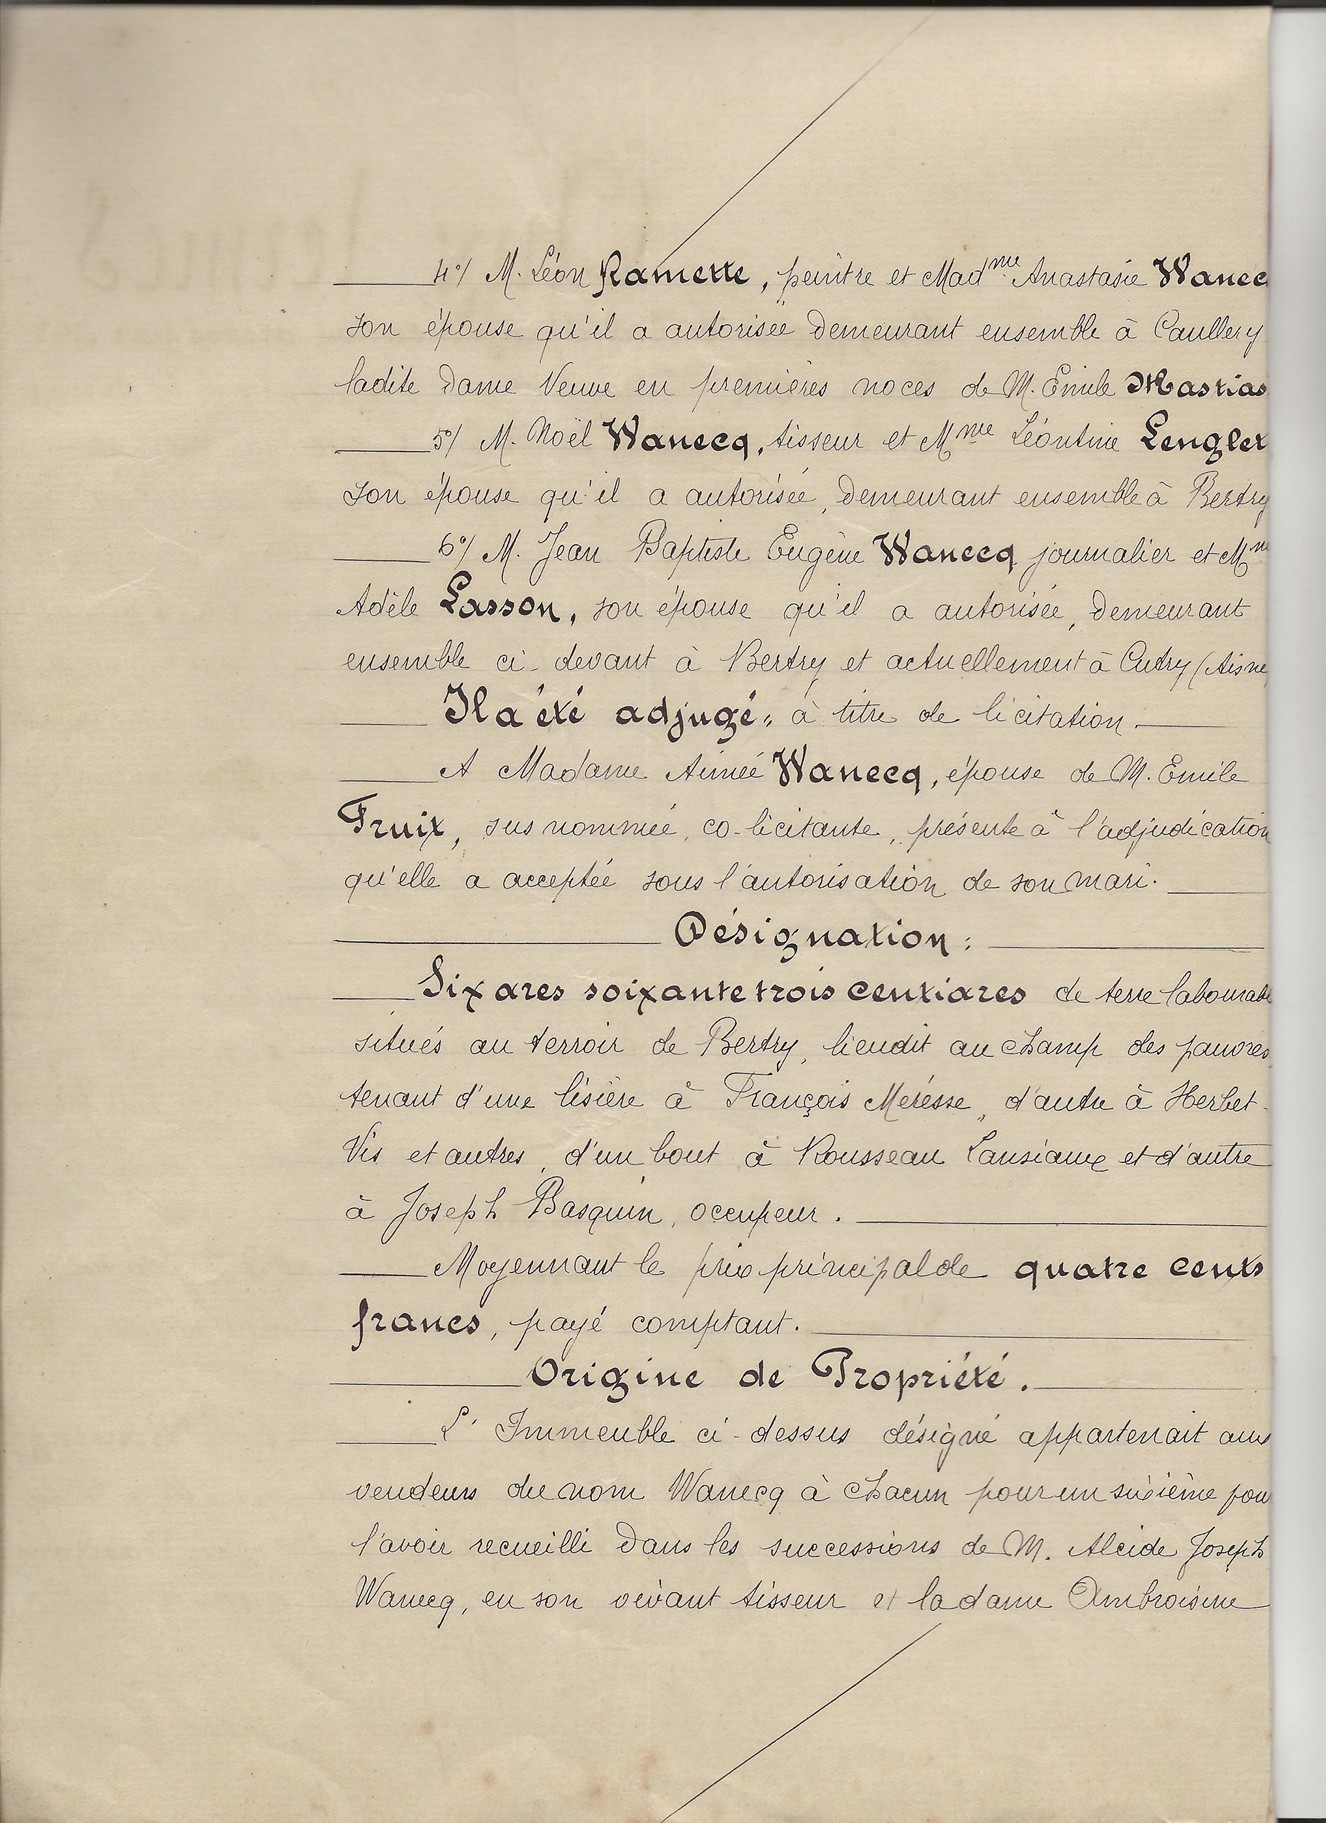 4°/ M. Léon Ramette, peintre et Mad^me Anastasie Wanec
son épouse qu'il a autorisée demeurant ensemble à Caullery
ladite dame Veuve en premières noces de M. Emile Mastias
5°/ M. Noël Wanecq, tisseur et M^me Léontine Lenglet
son épouse qu'il a autorisée, demeurant ensemble à Bertry
6°/ M. Jean Baptiste Eugène Wanecq journalier et M^me
Adèle Lasson, son épouse qu'il a autorisée, demeurant
ensemble ci-devant à Bertry et actuellement à Cutry (Aisne
Il a été adjugé, à titre de licitation.
A Madame Aimée Wanecq, épouse de M. Emile
Fruit, sus nommée, co-licitante, présente à l'adjudication
qu'elle a acceptée sous l'autorisation de son mari.
Désignation:
Six ares soixante trois centiares de terre labourable
situés au terroir de Bertry, lieudit au champ des pauvres,
tenant d'une lisière à François Méresse, d'autre à Herbet-
Vis et autres, d'un bout à Rousseau Lansiaux et d'autre
à Joseph Basquin, occupeur.
Moyennant le prix principal de quatre cents
francs, payé comptant.
Origine de Propriété.
L'Immeuble ci-dessus désigné appartenait aux
vendeurs du nom Wanecq à chacun pour un sixième pour
l'avoir recueilli dans les successions de M. Alcide Joseph
Wanecq, en son vivant tisseur et la dame Ambroisine